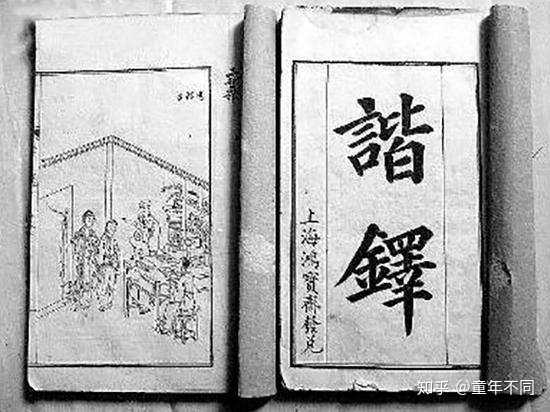 諧
鐸
上海鴻寶齋發兌
知乎 @童年不同